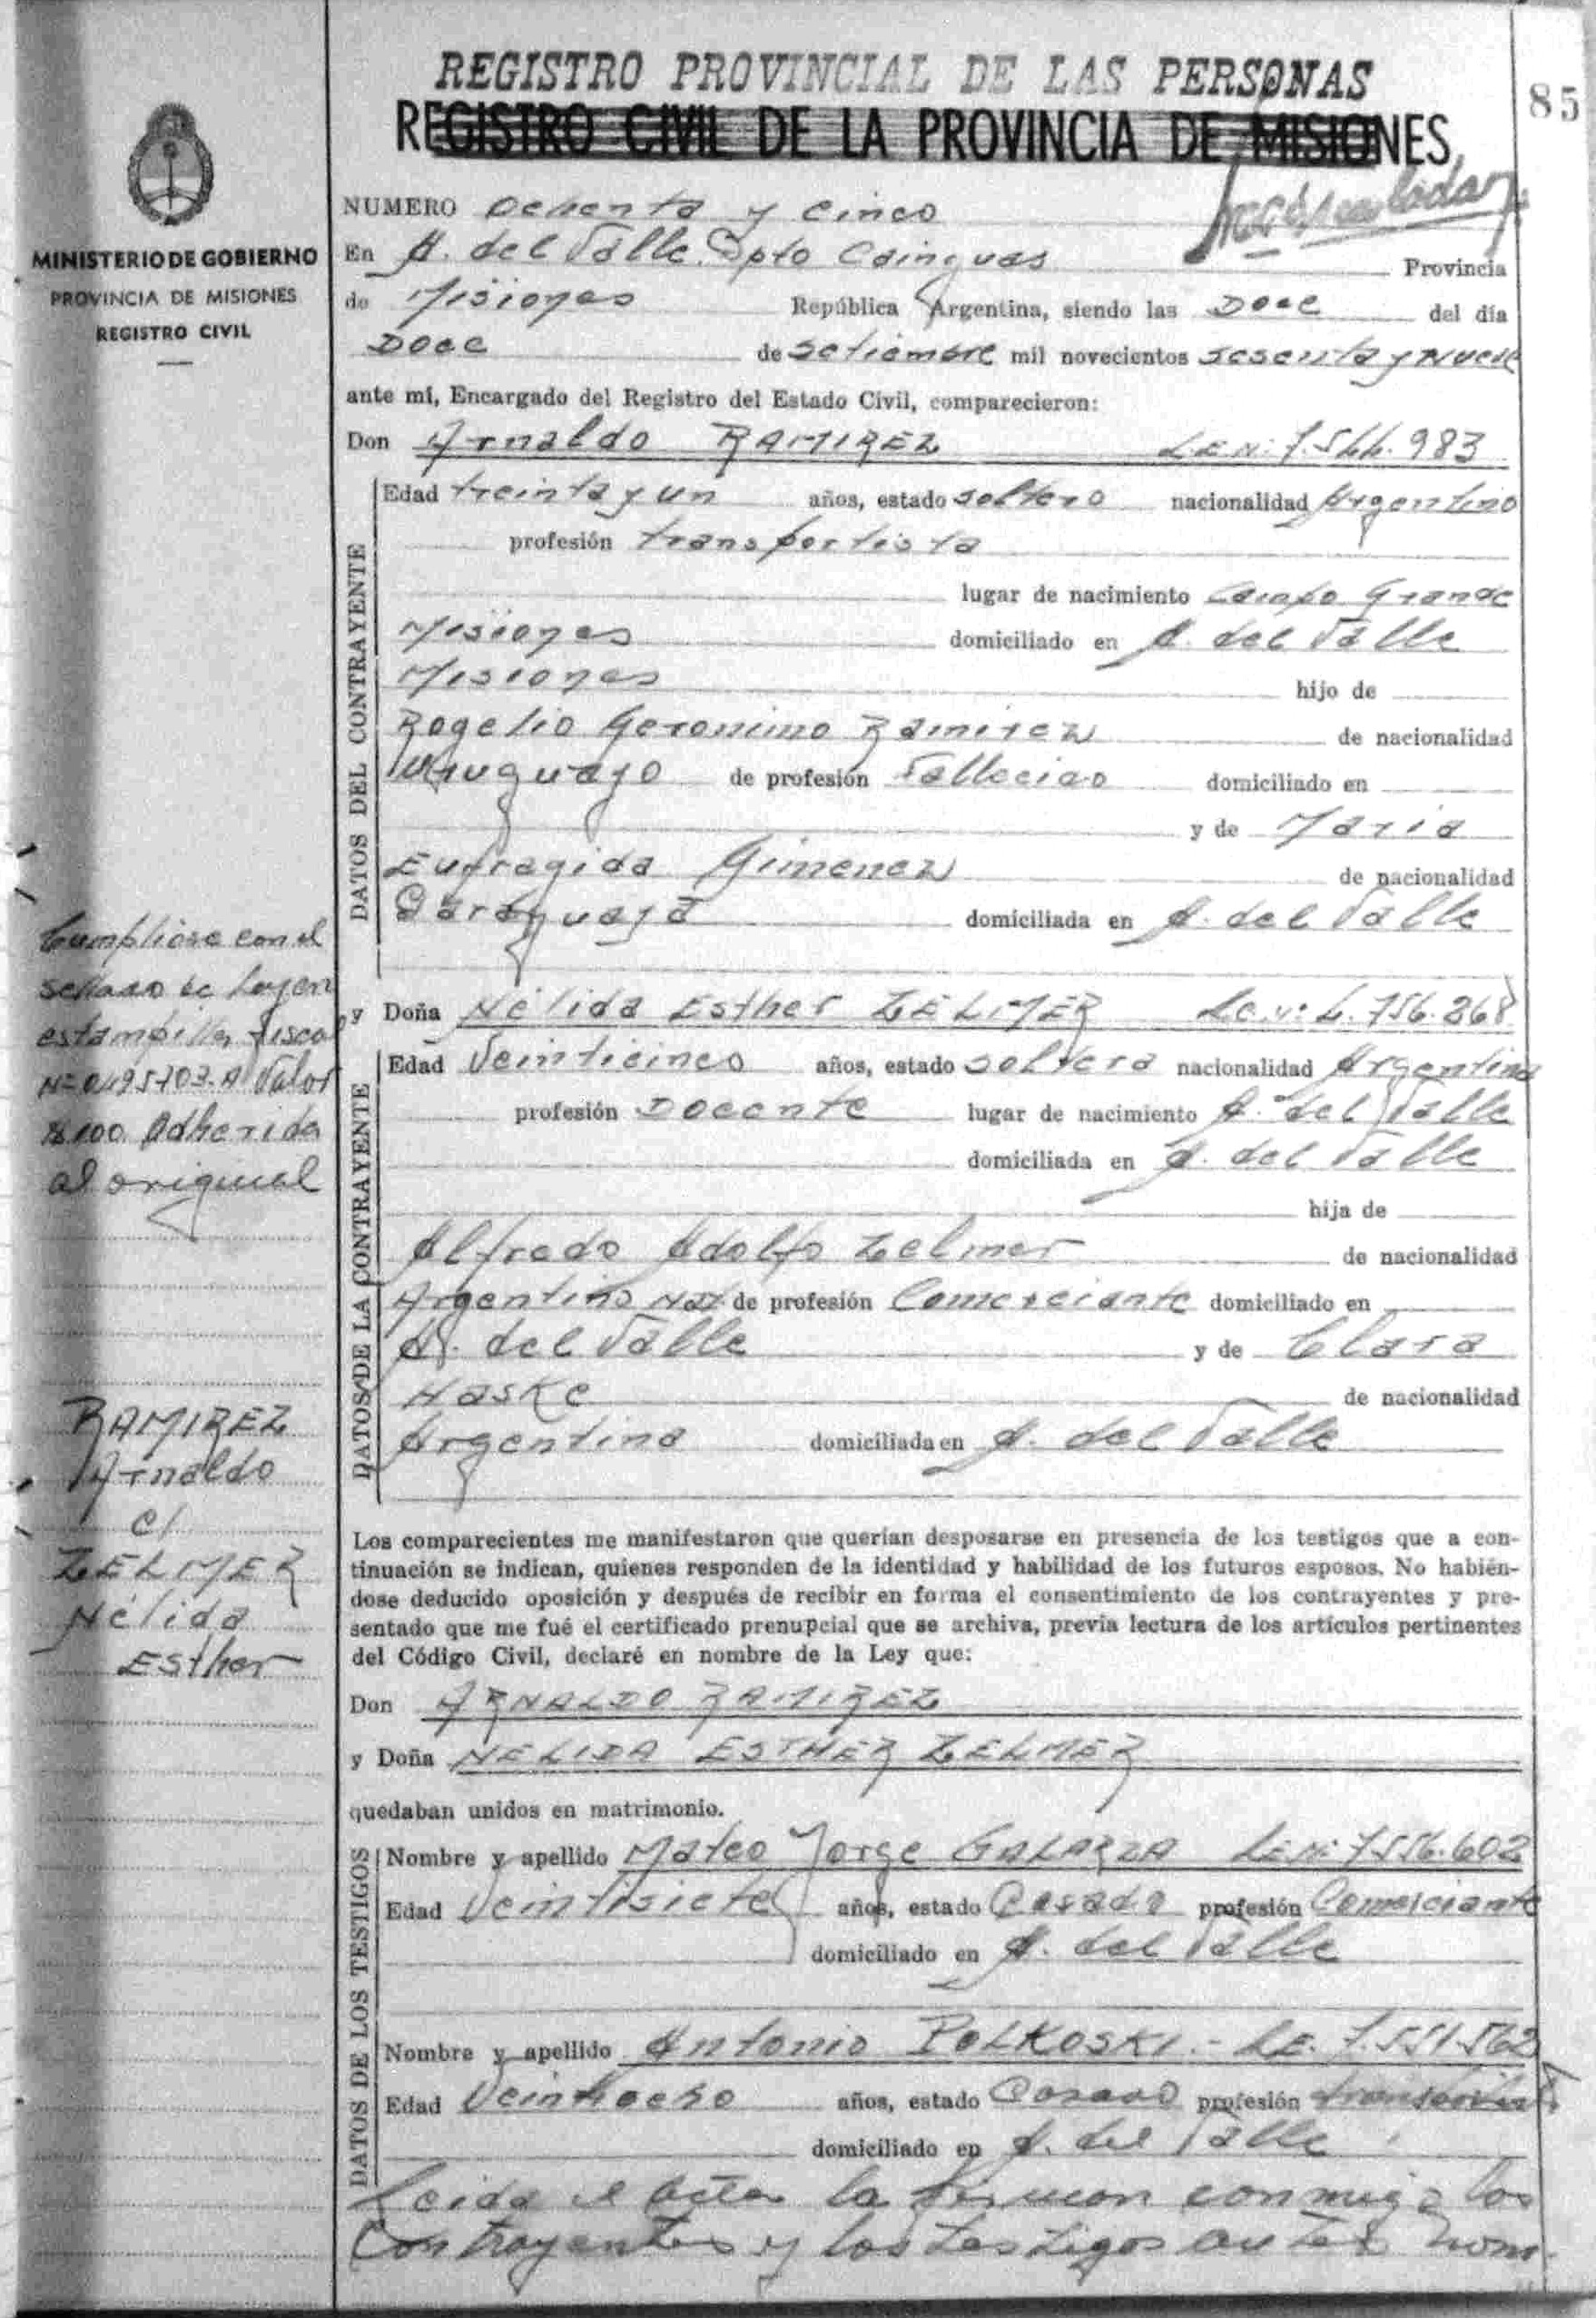 REGISTRO PROVINCIAL DE LAS PERSONAS
REGISTRO CIVIL DE LA PROVINCIA DE MISIONES,
85
MINISTERIO DE GOBIERNO
PROVINCIA DE MISIONES
REGISTRO CIVIL
NUMERO Ochenta y Cinco
En A. del Valle Dpto Cainguas Provincia
de Misiones República Argentina, siendo las Doce del día
Doce de Setiembre mil novecientos Sesenta y Nueve
ante mi, Encargado del Registro del Estado Civil, comparecieron:
Don Arnaldo RAMIREZ L.E.N:
DATOS DEL CONTRAYENTE
Edad treinta y un años, estado soltero nacionalidad Argentino
profesión transportista
lugar de nacimiento Campo Grande
Misiones domiciliado en A. del Valle
Misiones hijo de
Rogelio Geronimo Ramirez de nacionalidad
Uruguayo de profesión Fallecido domiciliado en
y de Maria
Eufragida Gimenez de nacionalidad
Paraguaya domiciliada en A. del Valle
y Doña Nélida Esther ZELMER
DATOS DE LA CONTRAYENTE
Edad Veinticinco años, estado soltera nacionalidad Argentina
profesión Docente lugar de nacimiento A. del Valle
domiciliada en A. del Valle
hija de
Alfredo Adolfo Zelmer de nacionalidad
Argentino Nat. de profesión Comerciante domiciliado en
A. del Valle y de Clara
Haske de nacionalidad
Argentina domiciliada en A. del Valle
Los comparecientes me manifestaron que querían desposarse en presencia de los testigos que a con-
tinuación se indican, quienes responden de la identidad y habilidad de los futuros esposos. No habién-
dose deducido oposición y después de recibir en forma el consentimiento de los contrayentes y pre-
sentado que me fué el certificado prenupcial que se archiva, previa lectura de los artículos pertinentes
del Código Civil, declaré en nombre de la Ley que:
Don ARNALDO RAMIREZ
y Doña NELIDA ESTHER ZELMER
quedaban unidos en matrimonio.
DATOS DE LOS TESTIGOS
Nombre y apellido Mateo Jorge GALARZA L.E.N: 7.556.602
Edad Veintisiete años, estado Casado profesión Comerciante
domiciliado en A. del Valle
Nombre y apellido Antonio POLKOSKI.- L.E. 7.551.562
Edad Veintiocho años, estado Casado profesión
domiciliado en A. del Valle
Leida el acta la firman conmigo los
Contrayentes y los testigos antes nom-
Cumpliose con el
sellado de Ley en
estampilla fiscal
Valor
$100. Adherida
al original
RAMIREZ
Arnaldo
c/
ZELMER
Nélida
Esther